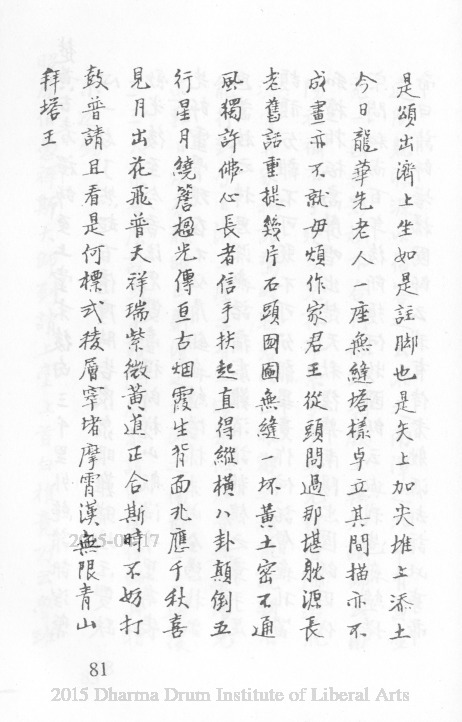 是頌出濟上生如是註脚也是矢上加尖堆上添土
今日龍華先老人一座無縫塔樣卓立其間描亦不
成畫亦不就毋煩作家君王從頭問過那堪躭源長
老舊話重提幾片石頭囫圇無縫一坯黃土密不通
風獨許佛心長者信手扶起直得縱橫八卦顛倒五
行星月繞簷楹光傳亘古烟霞生背面兆應千秋喜
見月出花飛普天祥瑞紫微黃道正合斯時不妨打
鼓普請且看是何標式稜層窣堵摩霄漢無限青山
拜塔王
2015-04-17
81
2015 Dharma Drum Institute of Liberal Arts